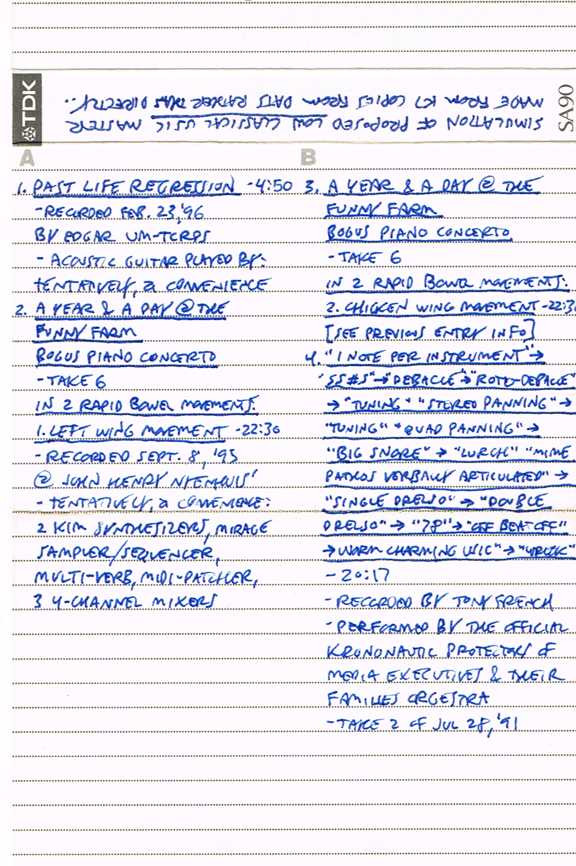 TDK
SA90
SIMULATION OF PROPOSED LOW CLASSICAL USIC MASTER
MADE FROM K7 COPIES FROM DATS RATHER THAN DIRECTLY..
A
1. PAST LIFE REGRESSION - 4:50
- RECORDED FEB. 23, '96
BY EDGAR UM-TCRPS
- ACOUSTIC GUITAR PLAYED BY:
TENTATIVELY, A CONVENIENCE
2. A YEAR & A DAY @ THE
FUNNY FARM
BOGUS PIANO CONCERTO
- TAKE 6
IN 2 RAPID BOWEL MOVEMENTS:
1. LEFT WING MOVEMENT - 22:30
- RECORDED SEPT. 8, '95
@ JOHN HENRY NIENHUIS'
- TENTATIVELY, A CONVENIENCE:
2 KIM SYNTHESIZERS, MIRAGE
SAMPLER/SEQUENCER,
MULTI-VERB, MIDI-PATCHER,
3 4-CHANNEL MIXERS
B
3. A YEAR & A DAY @ THE
FUNNY FARM
BOGUS PIANO CONCERTO
- TAKE 6
IN 2 RAPID BOWEL MOVEMENTS:
2. CHICKEN WING MOVEMENT - 22:3
[SEE PREVIOUS ENTRY INFO]
4. "1 NOTE PER INSTRUMENT" →
"SS#S" → DEBACLE → "ROTO-DEBACLE"
→ "TUNING" "STEREO PANNING" →
"TUNING" "QUAD PANNING" →
"BIG SNORE" → "LURCH" "MIME
PATHOS VERBALLY ARTICULATED" →
"SINGLE DRELSO" → "DOUBLE
DRELSO" → "78" → "OFF BEAT OFF"
→ WORM CHARMING USIC →
- 20:17
- RECORDED BY TONY FRENCH
- PERFORMED BY THE OFFICIAL
KRONONAUTIC PROTECTORS OF
MEDIA EXECUTIVES & THEIR
FAMILIES ORGESTRA
- TAKE 2 OF JUL 28, '91